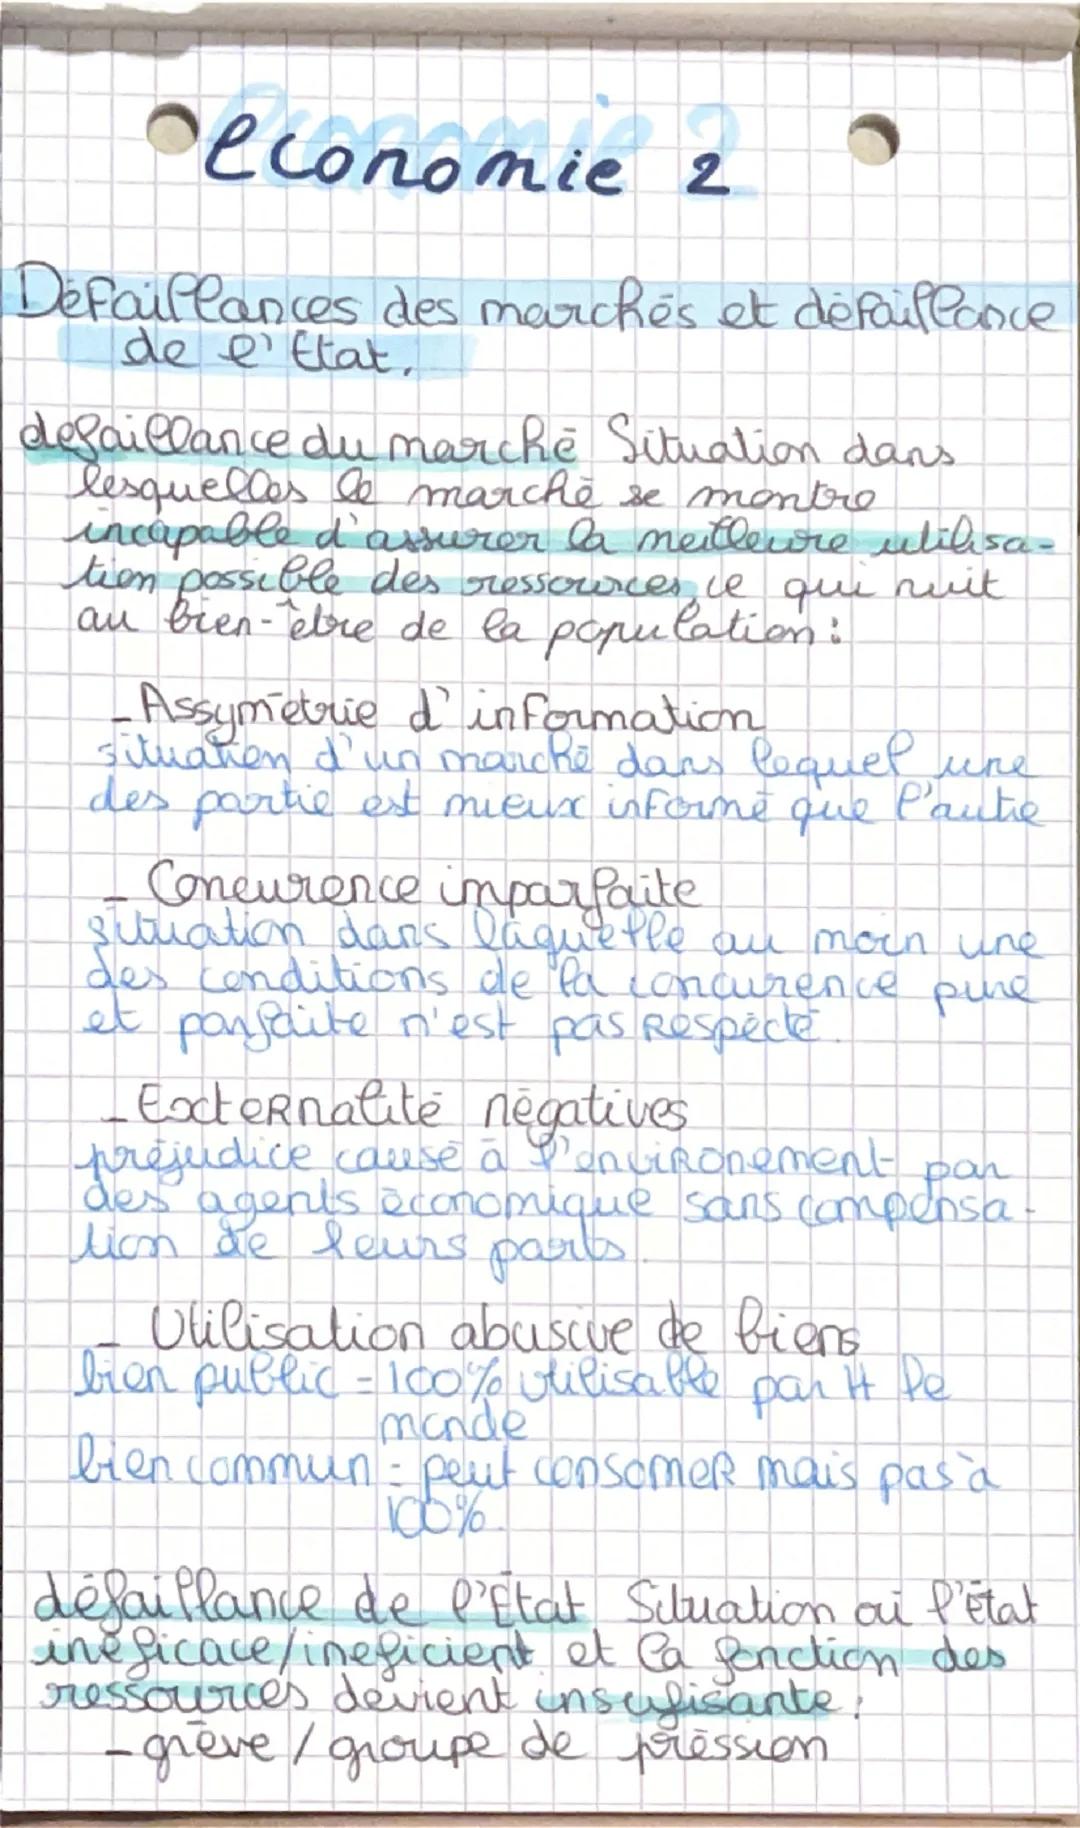 economie 2
Défaillances des marchés et défaillance
de l'Etat.
defaillance du marché Situation dans
lesquelles le marché se montre
incapable d'assurer la meilleure utilisa-
tion possible des ressources, ce qui nuit
au bien-être de la population :
- Assymétrie d'information
situation d'un marché dans lequel une
des partie est mieux informé que l'autre
- Concurence imparfaite
situation dans laquelle au moin une
des conditions de la concurence pure
et parfaite n'est pas respecté.
- Externalité négatives
préjudice causé à l'environement par
des agents économique sans compensa-
tion de leurs parts.
- Utilisation abusive de biens
bien public = 100% utilisable par tt le
monde
bien commun = peut consomer mais pas à
100%.
défaillance de l'État Situation ou l'état
inéficace/ineficient et la fonction des
ressources devient insufisante :
- grève / groupe de préssion